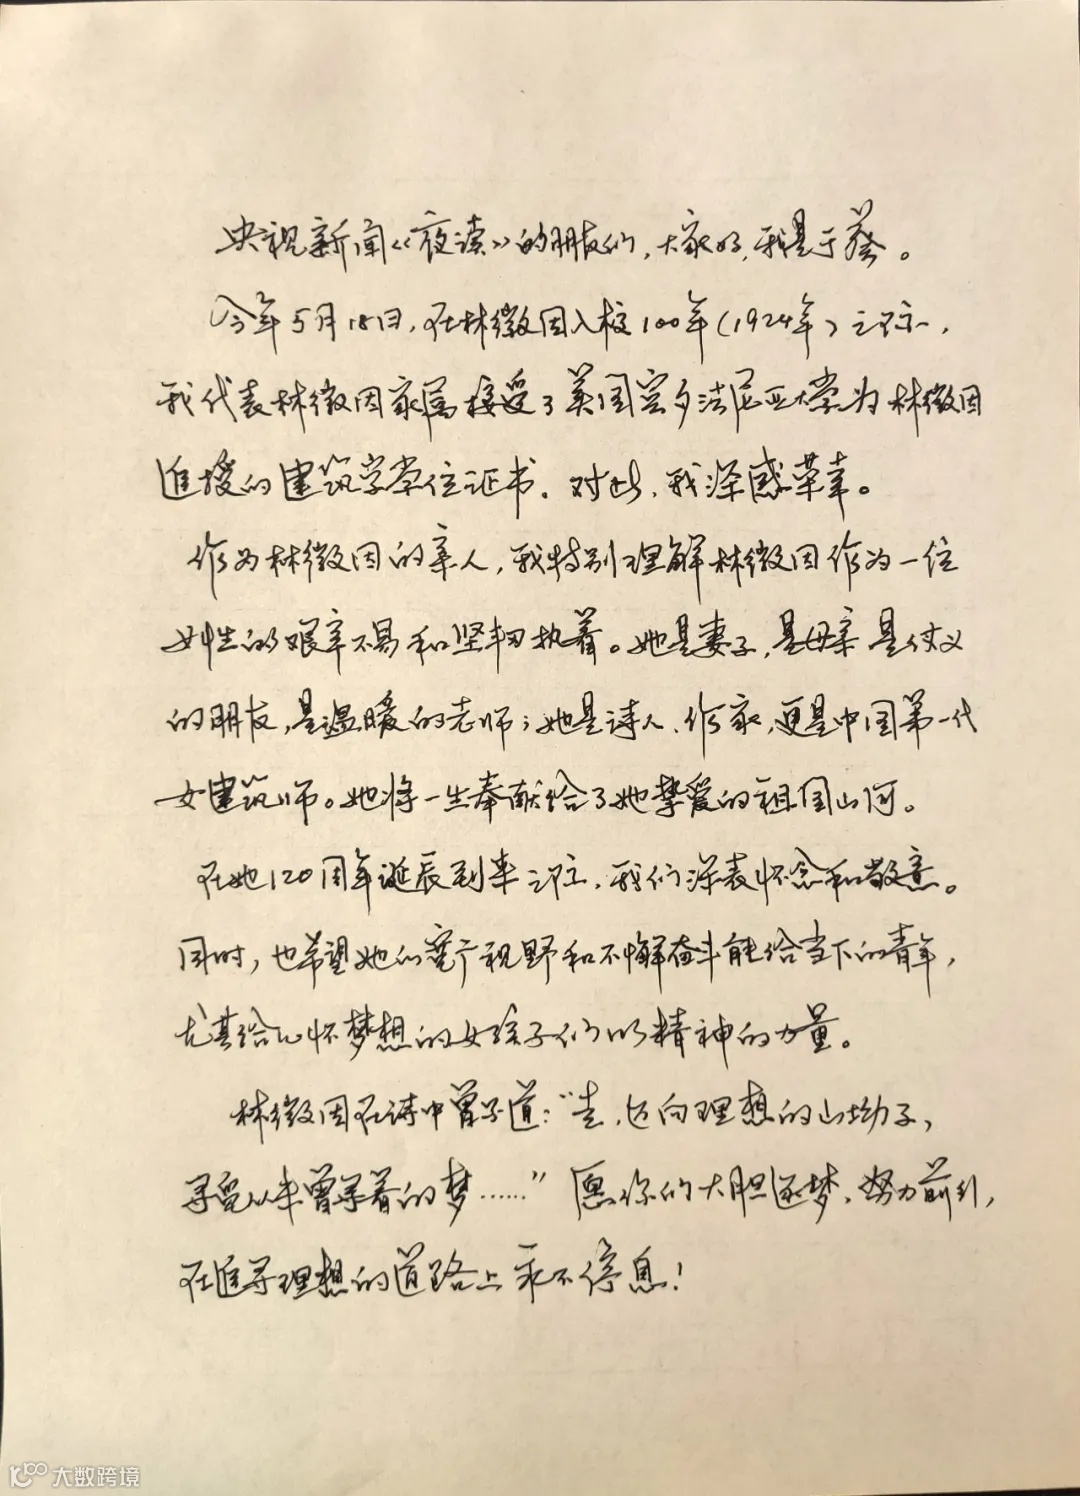 央视新闻《夜读》的朋友们，大家好，我是于葵。
今年5月18日，在林徽因入校100年（1924年）之际，
我代表林徽因家属接受了美国宾夕法尼亚大学为林徽因
追授的建筑学学位证书。对此，我深感荣幸。
作为林徽因的亲人，我特别理解林徽因作为一位
女性的艰辛不易和坚韧执着。她是妻子，是母亲，是仗义
的朋友，是温暖的老师；她是诗人、作家，更是中国第一代
女建筑师。她将一生奉献给了她挚爱的祖国山河。
在她120周年诞辰到来之际，我们深表怀念和敬意。
同时，也希望她的宽广视野和不懈奋斗能给当下的青年，
尤其给心怀梦想的女孩子们以精神的力量。
林徽因在诗中曾写道：“走，迈向理想的山坳子，
寻觅从未曾寻着的梦……”愿你们大胆逐梦、努力前行，
在追寻理想的道路上永不停息！
大数跨境